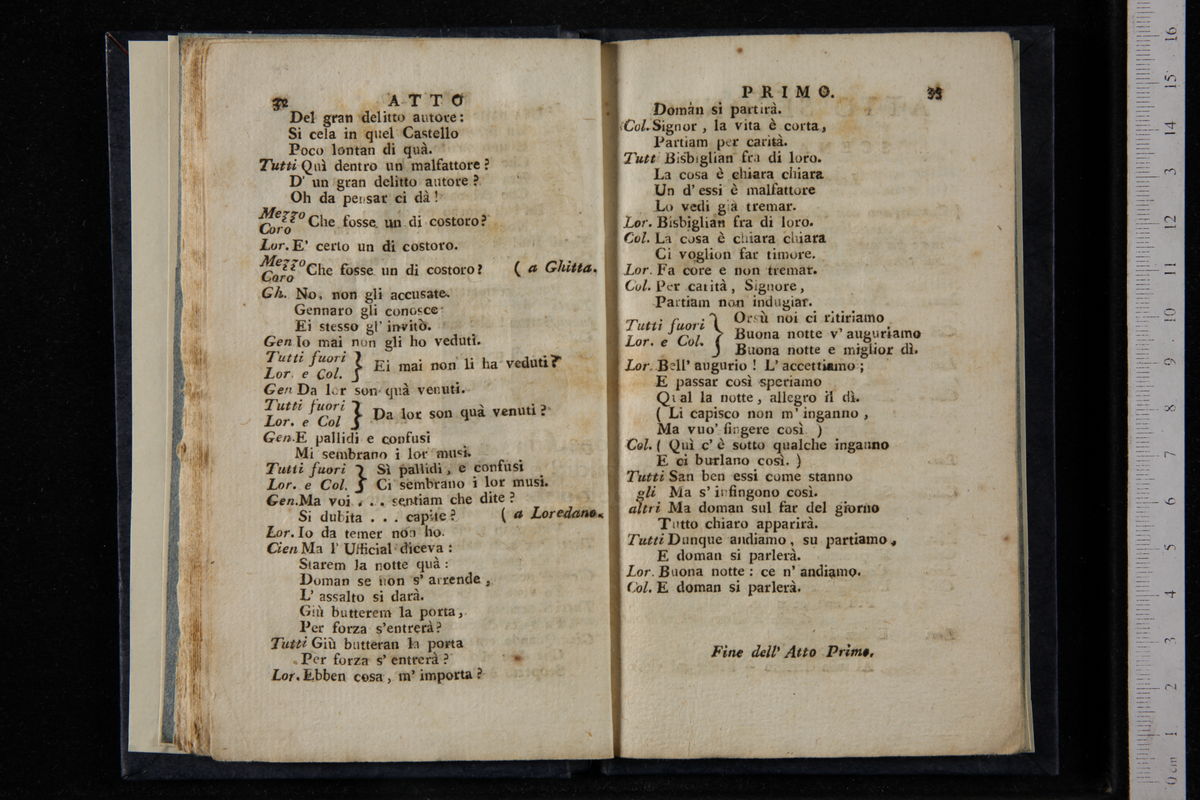 32 ATTO
Del gran delitto autore:
Si cela in quel Castello
Poco lontan di quà.
Tutti Quì dentro un malfattore?
D' un gran delitto autore?
Oh da pensar ci dà!
Mezzo Coro Che fosse un di costoro?
Lor. E' certo un di costoro.
Mezzo Coro Che fosse un di costoro? ( a Ghitta.
Gh. No, non gli accusate.
Gennaro gli conosce:
Ei stesso gl' invitò.
Gen Io mai non gli ho veduti.
Tutti fuori
Lor. e Col. } Ei mai non li ha veduti?
Gen Da lor son quà venuti.
Tutti fuori
Lor. e Col } Da lor son quà venuti?
Gen. E pallidi e confusi
Mi sembrano i lor musi.
Tutti fuori } Sì pallidi, e confusi
Lor. e Col. } Ci sembrano i lor musi.
Gen. Ma voi . . . sentiam che dite?
Si dubita . . . capite? ( a Loredano.
Lor. Io da temer non ho.
Cien Ma l' Ufficial diceva:
Starem la notte quà:
Doman se non s' arrende,
L' assalto si darà.
Giù butterem la porta,
Per forza s'entrerà?
Tutti Giù butteran la porta
Per forza s' entrerà?
Lor. Ebben cosa, m' importa?
PRIMO. 33
Domàn si partirà.
Col. Signor, la vita è corta,
Partiam per carità.
Tutt Bisbiglian fra di loro.
La cosa è chiara chiara
Un d' essi è malfattore
Lo vedi già tremar.
Lor. Bisbiglian fra di loro.
Col. La cosa è chiara chiara
Ci voglion far timore.
Lor. Fa core e non tremar.
Col. Per carità, Signore,
Partiam non indugiar.
Tutti fuori } Orsù noi ci ritiriamo
Lor. e Col. } Buona notte v' auguriamo
Buona notte e miglior dì.
Lor. Bell' augurio! L' accettiamo;
E passar così speriamo
Qual la notte, allegro il dì.
( Li capisco non m' inganno,
Ma vuo' fingere così. )
Col. ( Quì c' è sotto qualche inganno
E ci burlano così. )
Tutti San ben essi come stanno
gli Ma s' infingono così.
altri Ma doman sul far del giorno
Tutto chiaro apparirà.
Tutti Dunque andiamo, su partiamo,
E doman si parlerà.
Lor. Buona notte: ce n' andiamo.
Col. E doman si parlerà.
Fine dell' Atto Primo.
0 cm 1 2 3 4 5 6 7 8 9 10 11 12 13 14 15 16